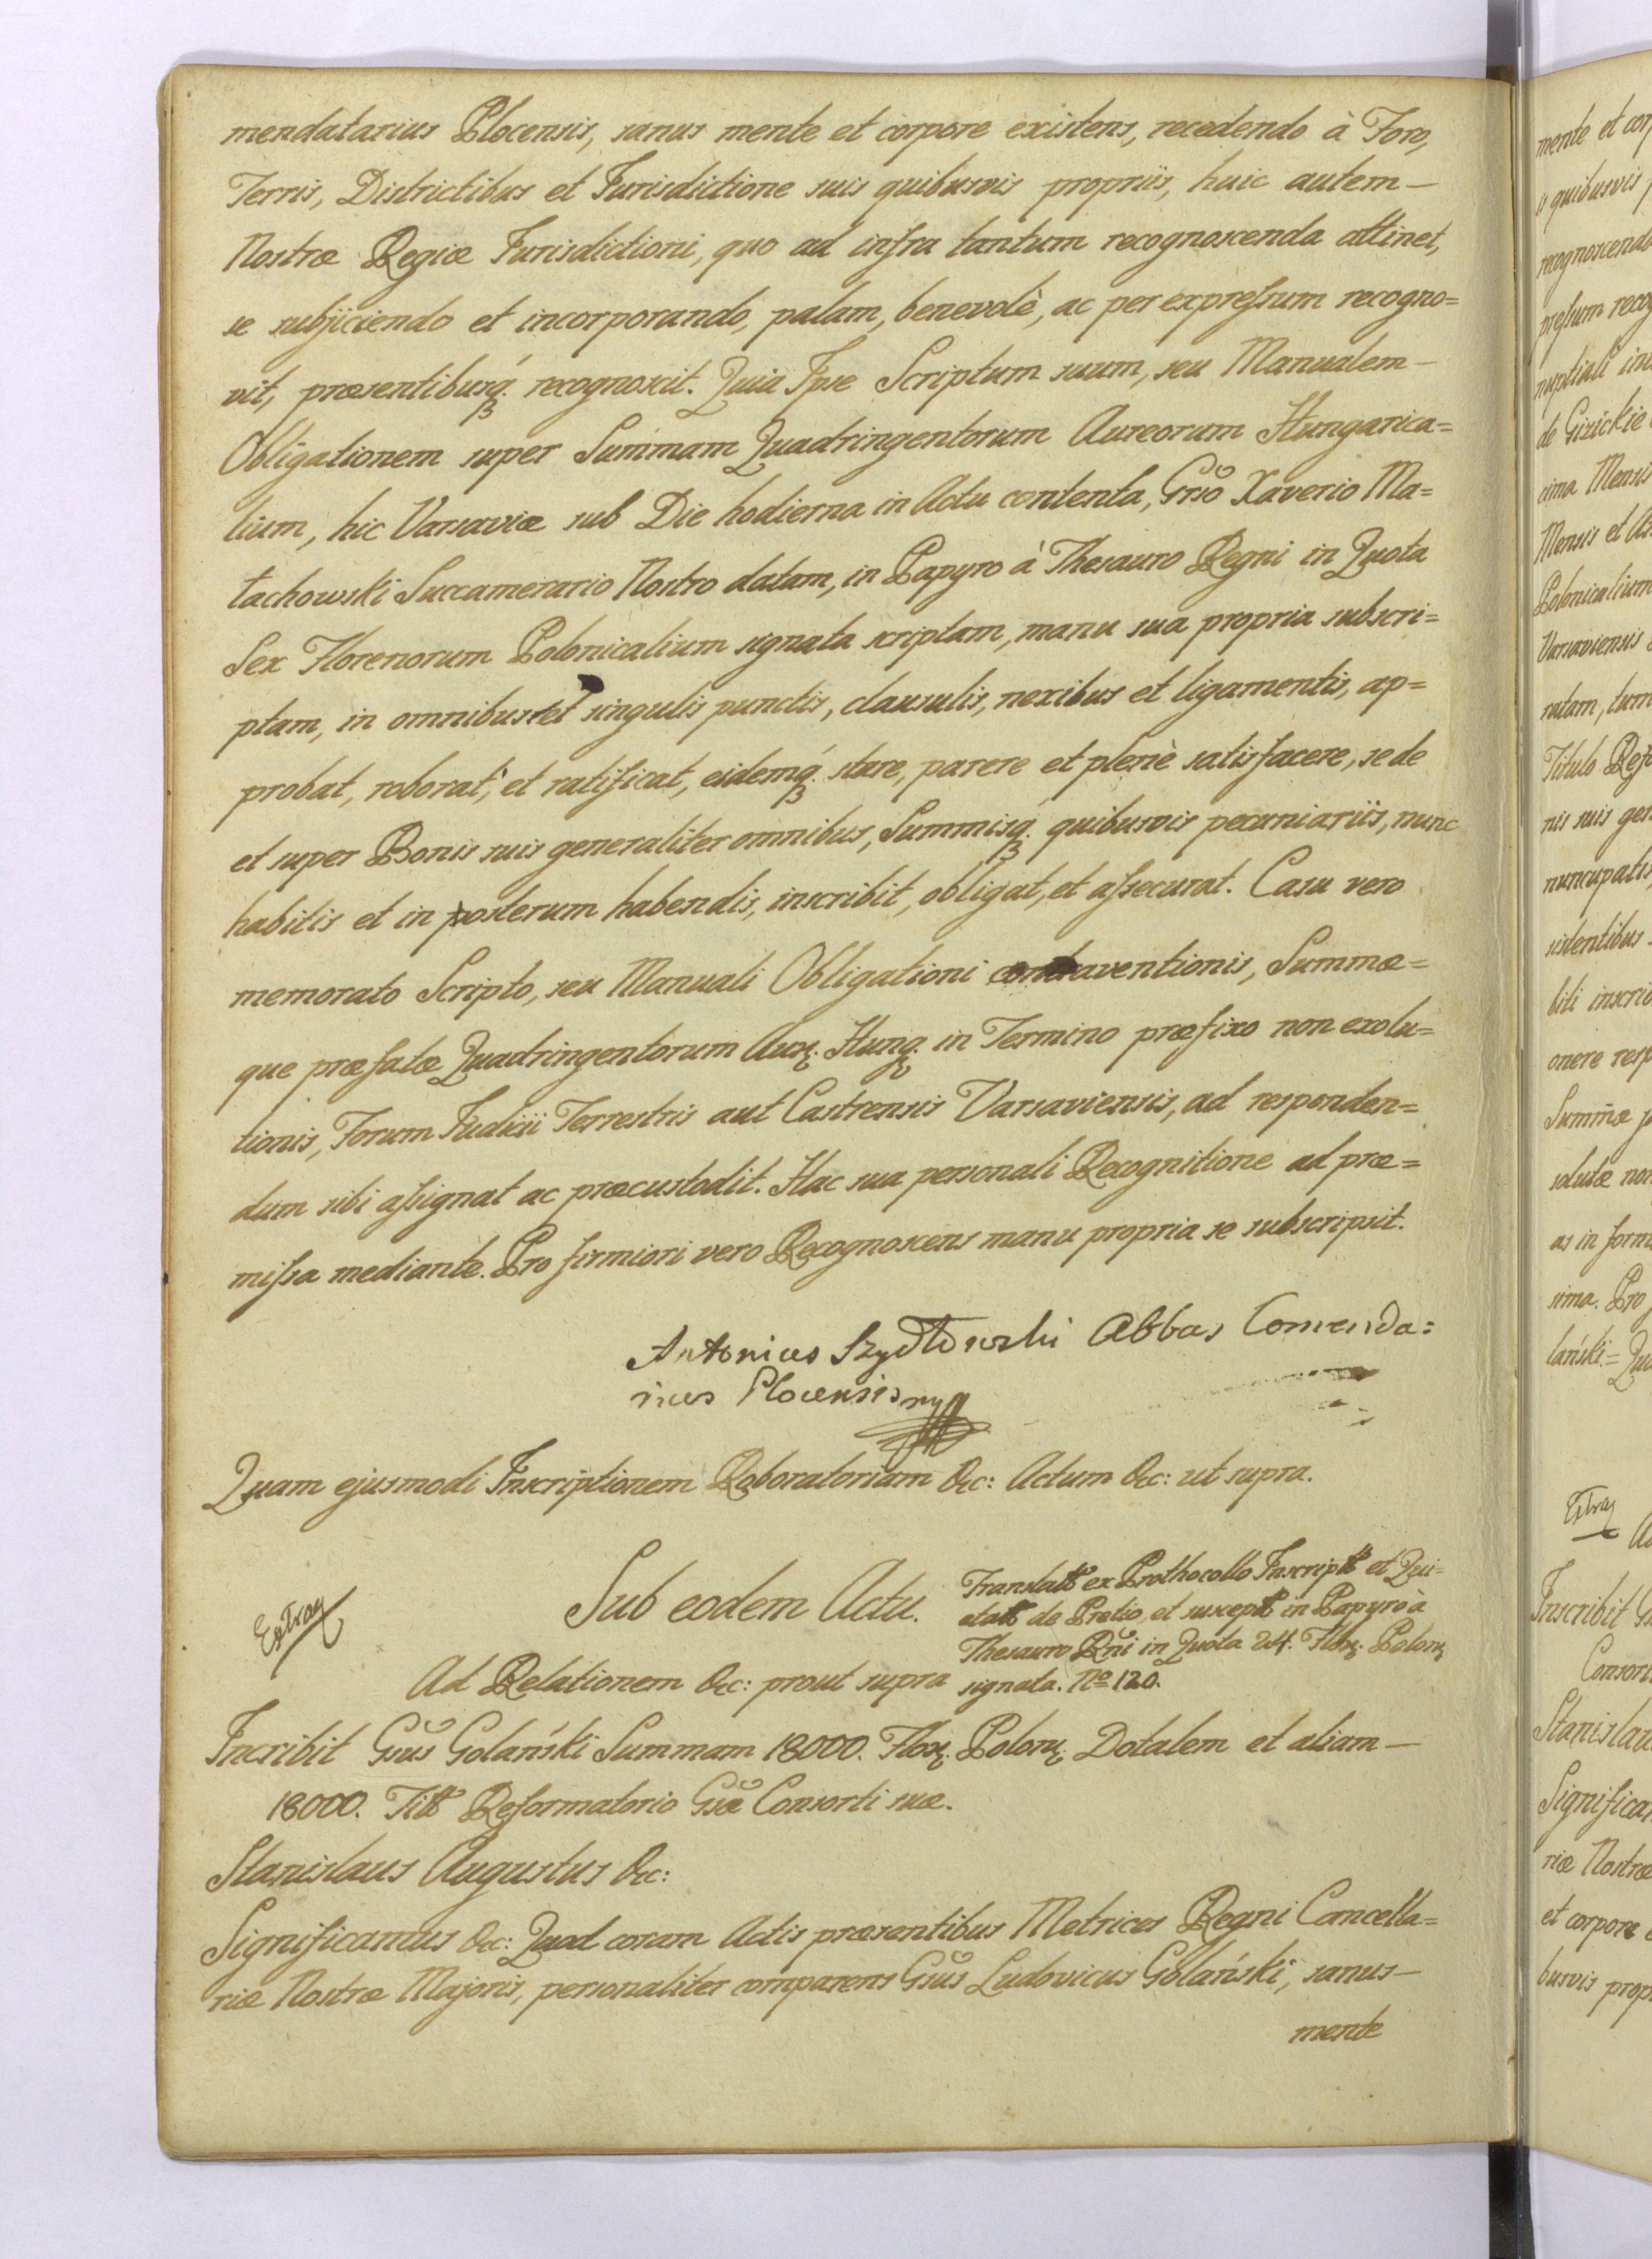 mendatarius Plocensis, sanus mente et corpore existens, recedendo à Foro,
Terris, Districtibus et Jurisdictione suis quibusvis propriis, huic autem —
Nostræ Regiæ Jurisdictioni, quo ad infra tantum recognoscenda attinet,
se subjiciendo et incorporando, palam, benevolè, ac per expressum recogno=
vit, præsentibusq́. recognoscit. Quia Ipse Scriptum suum, seu Manualem —
Obligationem super Summam Quadringentorum Aureorum Hungarica=
lium, hic Varsaviæ sub Die hodierna in Actu contenta, Grso Xaverio Ma=
łachowski Succamerario Nostro datam, in Papyro à Thesauro Regni in Quota
Sex Florenorum Polonicalium signata scriptam, manu sua propria subscri=
ptam, in omnibus et singulis punctis, clausulis, nexibus et ligamentis, ap=
probat, roborat, et ratificat, eidemq́. stare, parere et plenè satisfacere, se de
et super Bonis suis generaliter omnibus, Summisq́. quibusvis pecuniariis, nunc
habitis et in posterum habendis, inscribit, obligat, et assecurat. Casu vero
memorato Scripto, seu Manuali Obligationi contraventionis, Summæ=
que præfatæ Quadringentorum Aur. Hung. in Termino præfixo non exolu=
tionis, Forum Judicii Terrestris aut Castrensis Varsaviensis, ad responden=
dum sibi assignat ac præcustodit. Hac sua personali Recognitione ad præ=
missa mediante. Pro firmiori vero Recognoscens manu propria se subscripsit.
Antonius Szydłowski Abbas Comenda:
rius Plocensis mp
Quam ejusmodi Inscriptionem Roboratoriam &c: Actum &c: ut supra.
Extrad
Sub eodem Actu.
Translatt ex Prothocollo Inscriptt et Qui-
etatt de Pretio, et susceptt in Papyro à
Thesauro Rni in Quota 24. Flor. Polon.
signata. No 120.
Ad Relationem &c: prout supra
Incribit Gsus Golański Summam 18000. Flor. Polon. Dotalem et aliam —
18000. Titt Reformatorio Gsæ Consorti suæ.
Stanislaus Augustus &c:
Significamus &c: Quod coram Actis præsentibus Metrices Regni Cancella=
riæ Nostræ Majoris, personaliter comparens Gsus Ludovicus Golański, sanus —
mente
mente et cor
s quibusvis
recognoscend
pressum recog
nuptiali
de Giżickie
cima Mensis
Mensis et
Polonicalium
Varsaviensis
ratam, tum
Titulo Ref
nis suis gen
nuncupatis
sistentibus
bili inscrib
onere resp
Summæ p
solutæ non
as in form
sima. Pro
lański =
Extrad
Inscribit
Consort
Stanislau
Significa
riæ Nostræ
et corpore
busvis prop